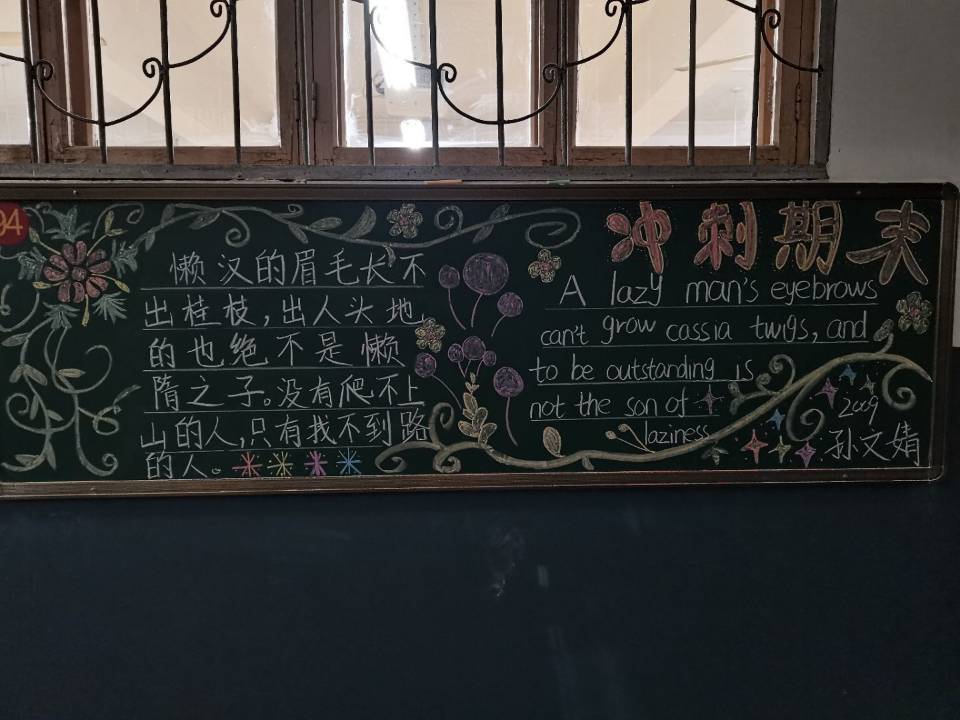 94
懒汉的眉毛长不
出桂枝，出人头地
的也绝不是懒
隋之子。没有爬不上
山的人，只有找不到路
的人。
冲刺期末
A lazy man's eyebrows
can't grow cassia twigs, and
to be outstanding is
not the son of
laziness
2009
孙文婧